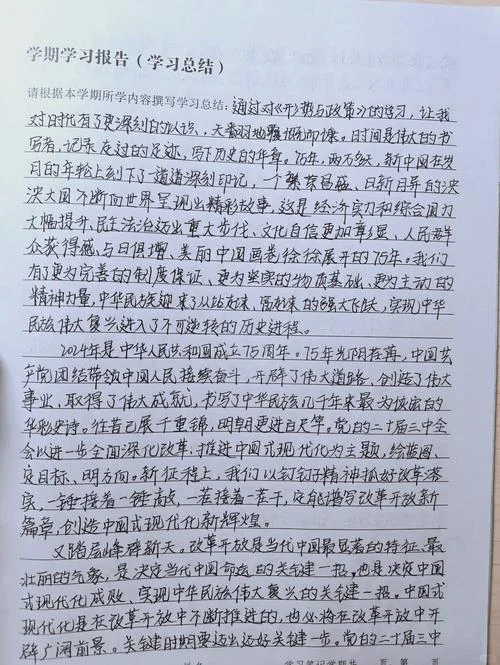 学期学习报告（学习总结）
请根据本学期所学内容撰写学习总结：通过对《形势与政策》的学习，让我
对时代有了更深刻的认识，天翻地覆慨而慷。时间是伟大的书
写者，记录走过的足迹，写下历史的年章。75年，两万多天，新中国在岁
月的年轮上刻下了一道道深刻印记，一个繁荣昌盛、日新月异的泱
泱大国不断向世界呈现出精彩故事，这是经济实力和综合国力
大幅提升、民主法治迈出重大步伐、文化自信更加彰显、人民群
众获得感与日俱增、美丽中国画卷徐徐展开的75年。我们
有了更为完善的制度保证、更为坚实的物质基础、更为主动的
精神力量，中华民族迎来了从站起来、富起来的强大飞跃，实现中华
民族伟大复兴进入了不可逆转的历史进程。
2024年是中华人民共和国成立75周年。75年光阴荏苒，中国共
产党团结带领中国人民接续奋斗，开辟了伟大道路、创造了伟大
事业、取得了伟大成就，书写了中华民族几千年来最为恢宏的
华彩史诗。往昔已展千重锦，明朝更进百尺竿。党的二十届三中全
会以进一步全面深化改革、推进中国式现代化为主题，绘蓝图、
定目标、明方向。新征程上，我们以钉钉子精神抓好改革落
实，一锤接着一锤敲，一茬接着一茬干，定能谱写改革开放新
篇章，创造中国式现代化新辉煌。
又踏层峰辟新天。改革开放是当代中国最显著的特征、最
壮丽的气象，是决定当代中国命运的关键一招，也是决定中国
式现代化成败、实现中华民族伟大复兴的关键一招。中国式
现代化是在改革开放中不断推进的，也必将在改革开放中开
辟广阔前景。关键时期要迈出迈好关键一步。党的二十届三中
学习笔记学期共 页 第 页